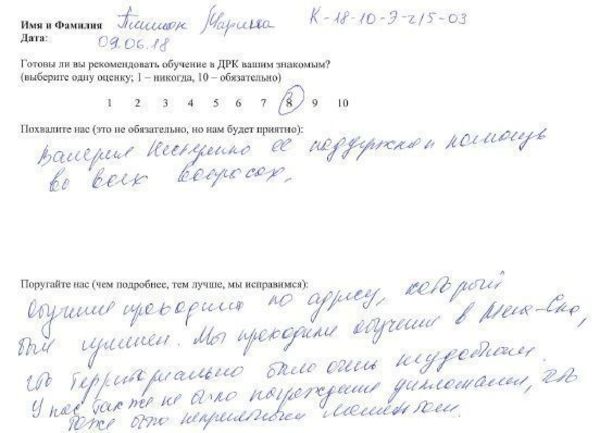 Имя и Фамилия Марина К-18-10-Э-2/5-03
Дата: 09.06.18
Готовы ли вы рекомендовать обучение в ДРК вашим знакомым?
(выберите одну оценку; 1 – никогда, 10 – обязательно)
1 2 3 4 5 6 7 8 9 10
Похвалите нас (это не обязательно, но нам будет приятно):
Валерия Нестеренко ее поддержка и помощь
во всех вопросах,
Поругайте нас (чем подробнее, тем лучше, мы исправимся):
Обучение проводили по адресу, который
был Мы проходили обучение в
что территориально было очень неудобным.
У нас также не было награждение дипломами, что
тоже было неприятным моментом.